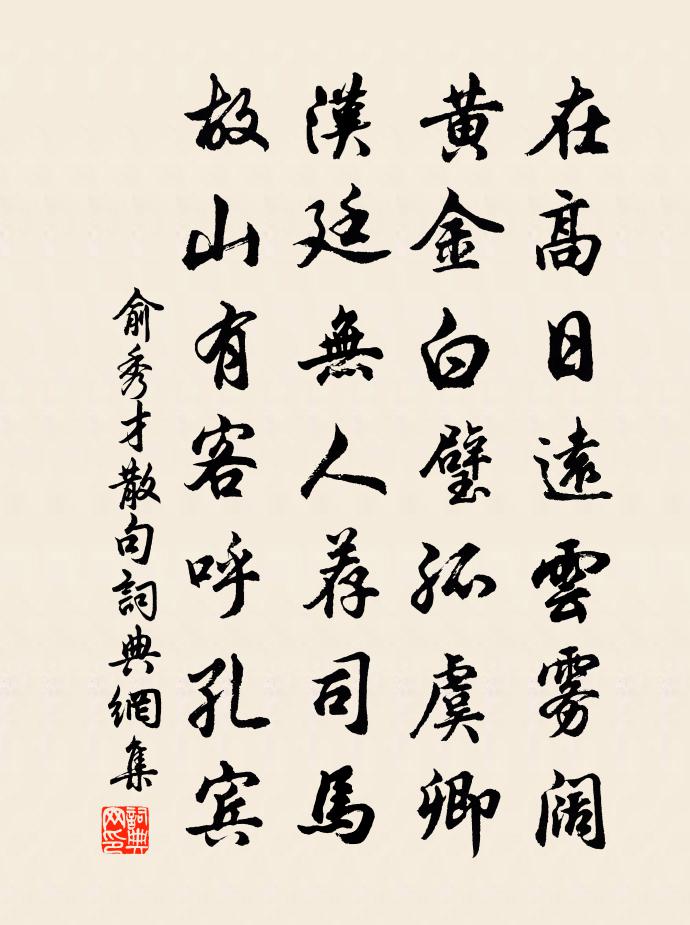 在高日遠雲雾阔
黄金白璧孤虞卿
漢廷無人荐司馬
故山有客呼孔宾
俞秀才散句詞典網集
詞典网印